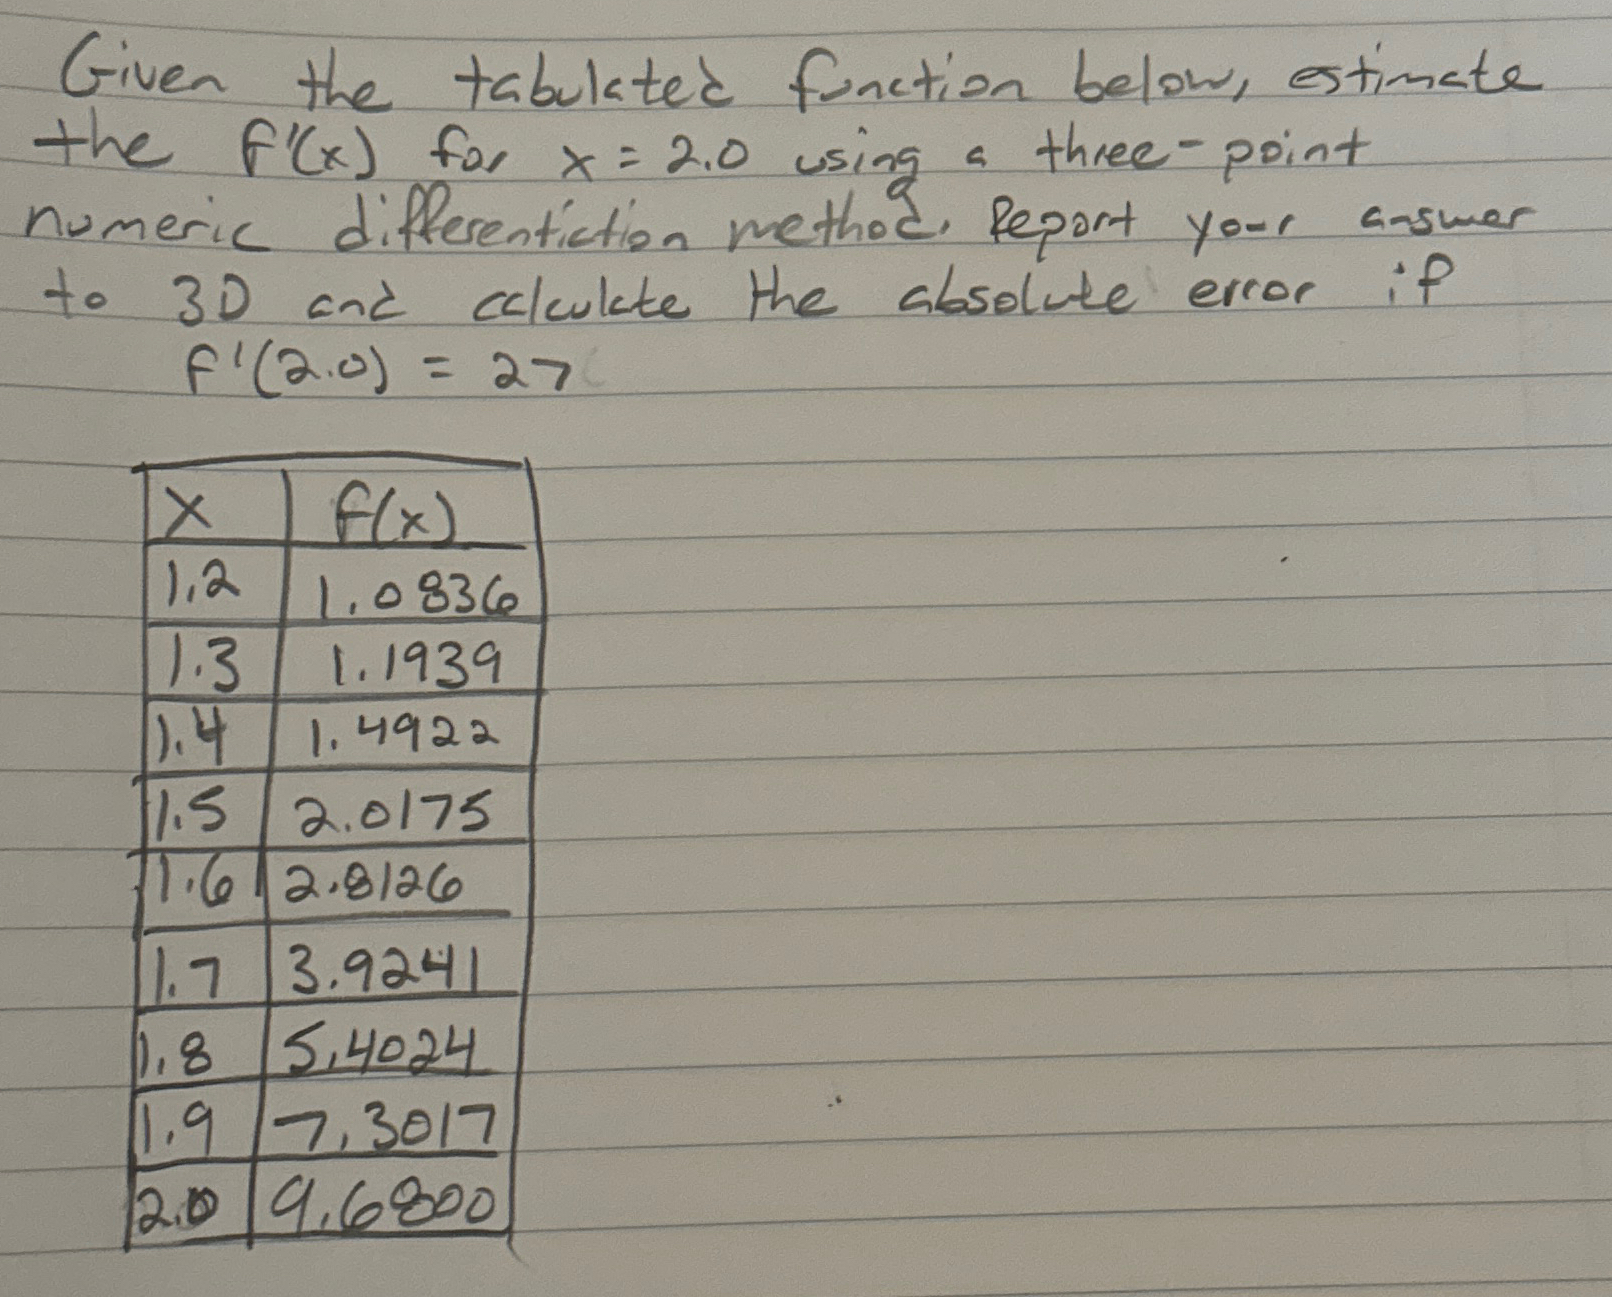 Given the tabulated function below, estimate
the f'(x) for x = 2.0 using a three-point
numeric differentiation method. Report your answer
to 3D and calculate the absolute error if
f'(2.0) = 27
x f(x)
1.2 1.0836
1.3 1.1939
1.4 1.4922
1.5 2.0175
1.6 2.8126
1.7 3.9241
1.8 5.4024
1.9 7.3017
2.0 9.6800